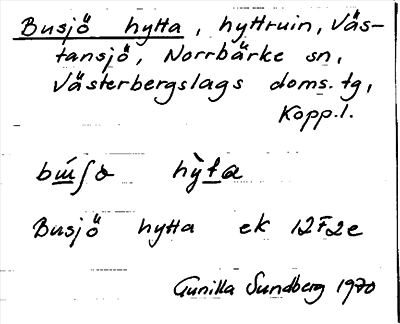 Busjö hytta, hyttruin, Väs-
tansjö, Norrbärke sn,
Västerbergslags doms. tg,
Kopp.l.
hỳta
Busjö hytta ek 12F2e
Gunilla Sundberg 1970